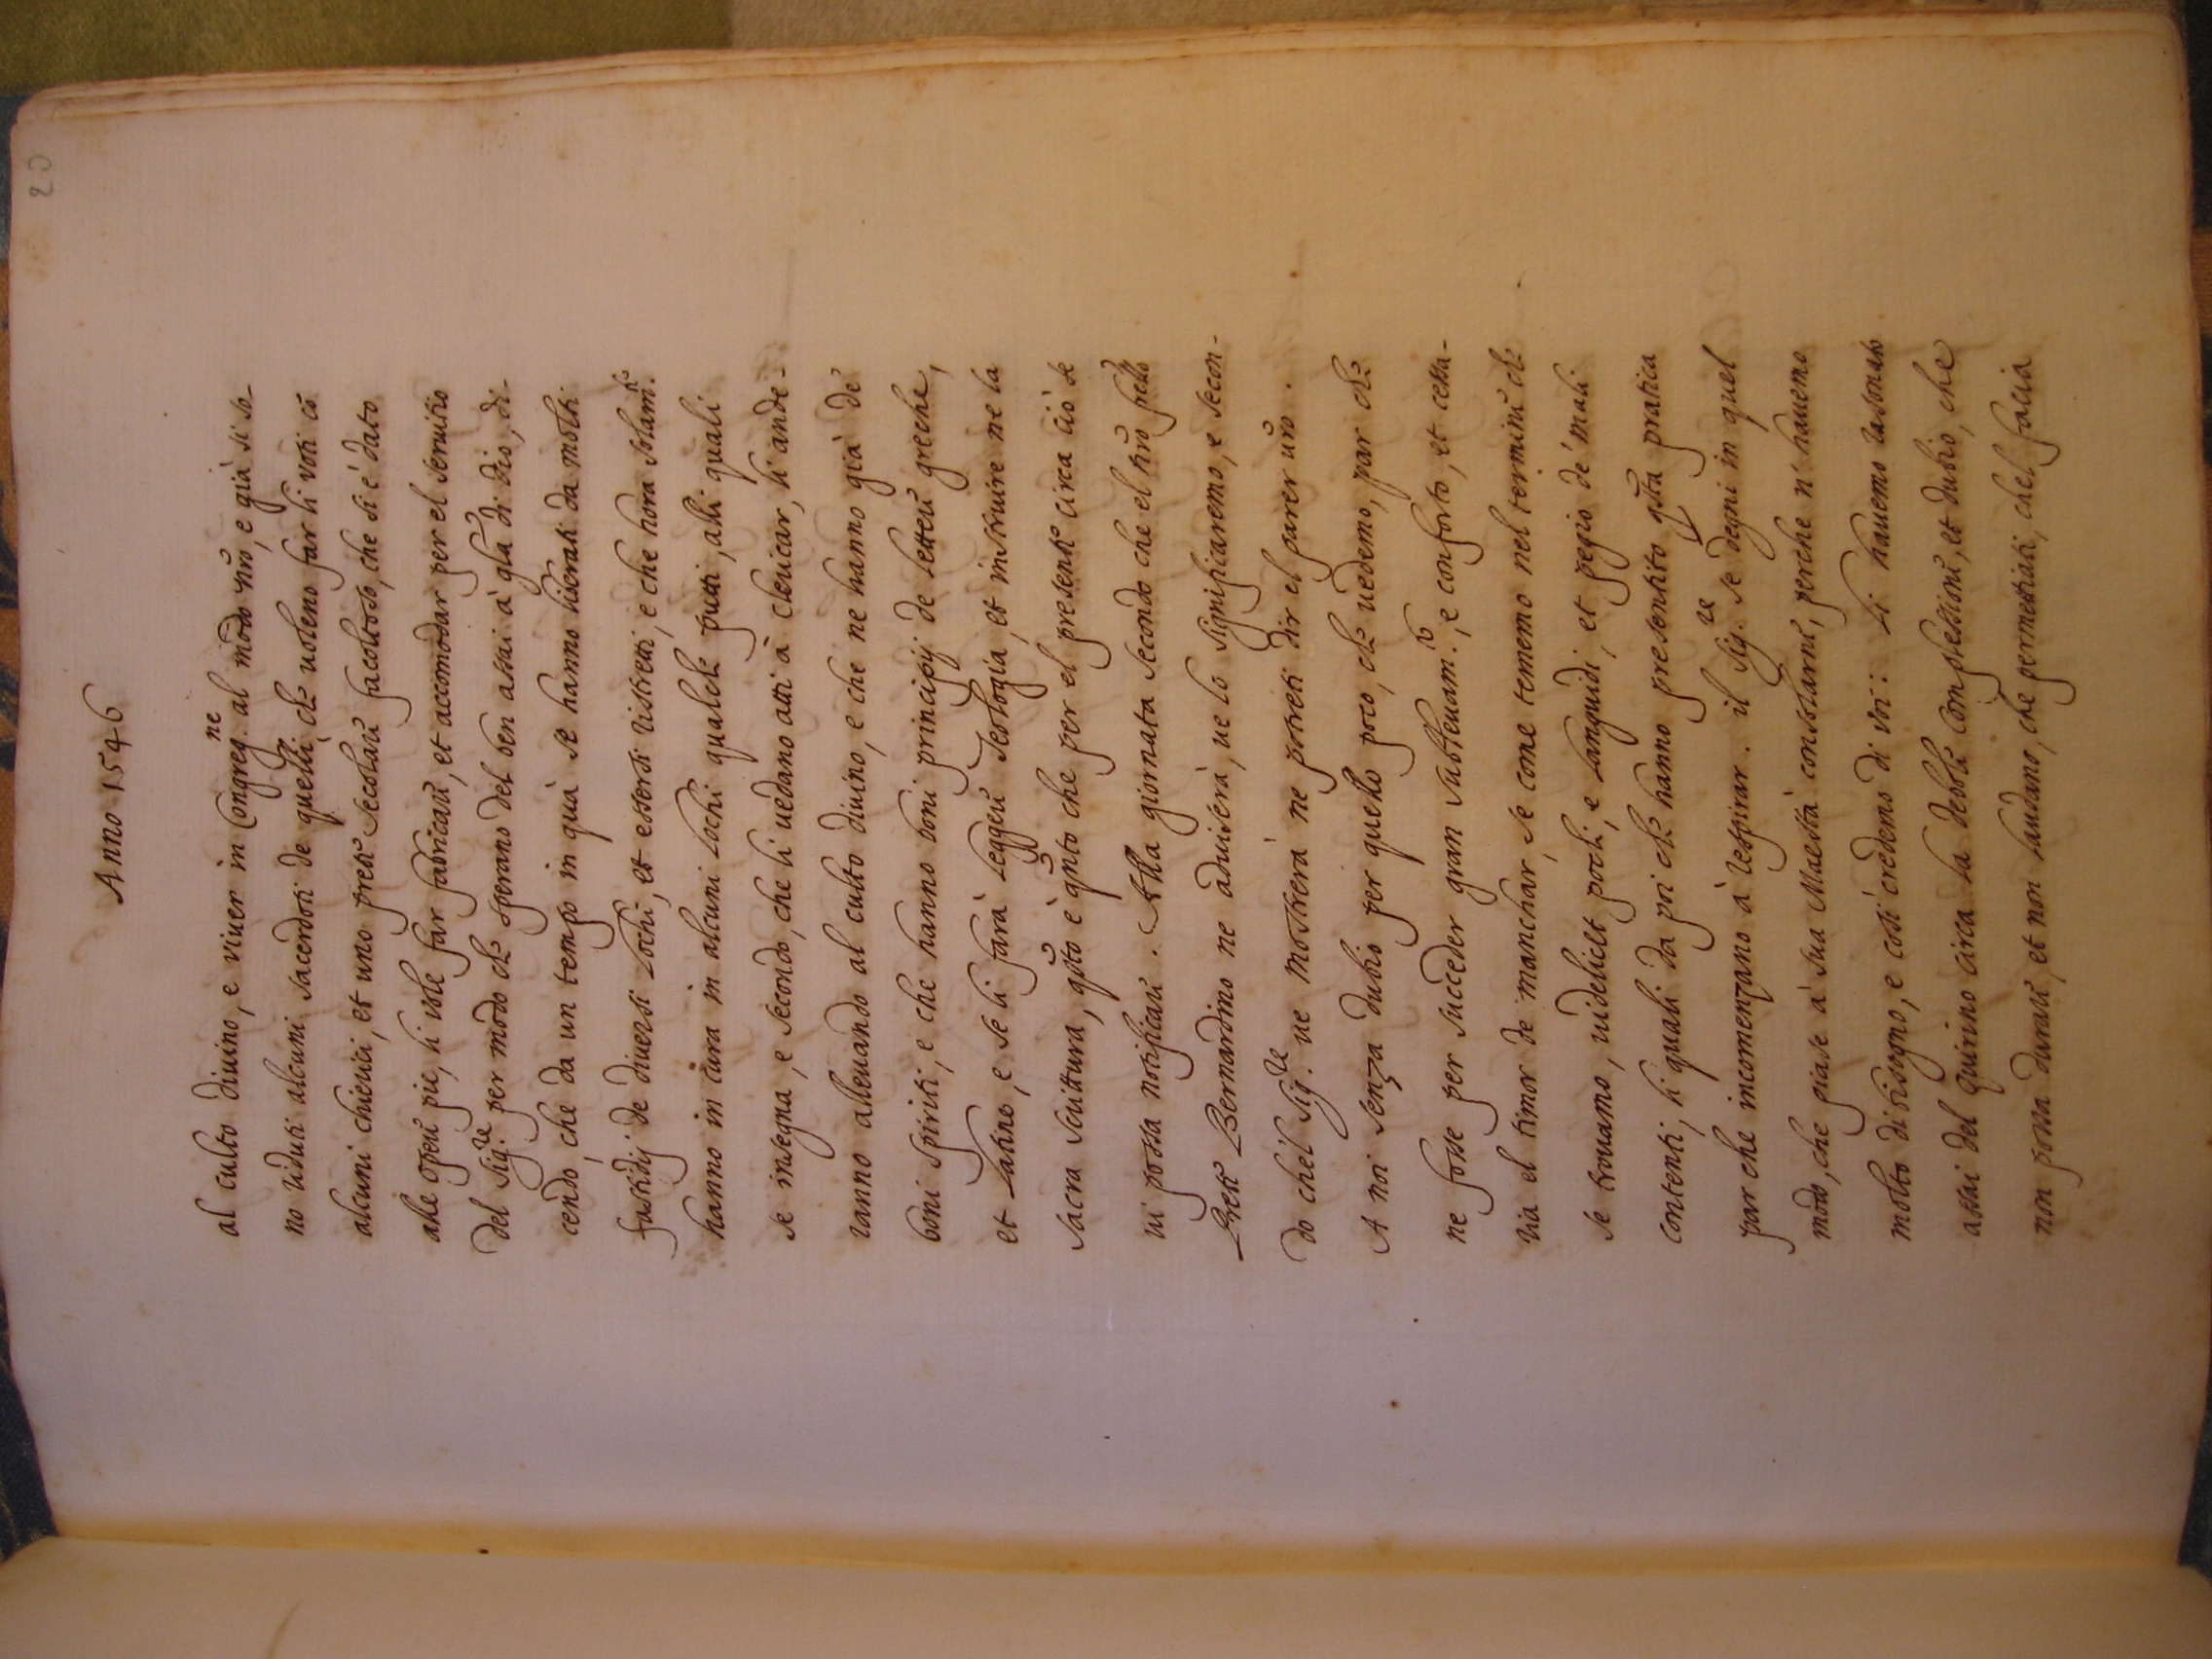 20
Anno 1546
al culto diuino, e viuer in Congreg.ne al modo nr̃o, e già si so-
no uduti alcuni sacerdoti de quelli, ch̃ uoleno far li voti cõ
alcuni chierici, et uno prete secolare facoltoso, che si è dato
alle opere pie, li vole far fabricare, et accomodar per el seruitio
del Sig.re per modo ch̃ sperano del ben assai à gl̃a di dio, di-
cendo, che da un tempo in quà se hanno liberati da molti
fastidij de diuersi Lochi, et essersi ristretti, e che hora solam.te
hanno in cura in alcuni Lochi qualch̃ putti, alli quali
se insegna, e secondo, che li uedano atti à clericar, li ande-
ranno alleuando al culto diuino, e che ne hanno già de
boni spiriti, e che hanno boni principij de lettere greche,
et Latine, e se li farà leggere Teologia, et instruire ne la
sacra scrittura, qũto è qñto che per el presente circa ciò se
ui possa notificare. Alla giornata secondo che el nr̃o fr̃ello
Prete Bernardino ne aduiserà, ue lo significaremo, e secon-
do chel Sig.re ue mostrerà ne potreti dir el parer ur̃o.
A noi senza dubio per quello poco, ch̃ uedemo, par ch̃
ne fosse per succeder gran subleuam.to, e conforto, et cessa-
ria el timor de manchar, se come tememo nel termine ch̃
se trouamo, uidelicet pochi, e languidi, et pegio de mali
contenti, li quali da poi ch̃ hanno presentito qũta pratica
par che incomenzano à respirar. il Sig.re se degni in quel
modo, che piase a sua Maestà consolarne, perche n'hauemo
molto di bisogno, e cosi credemo di voi: Li hauemo rasonato
assai del quirino circa la debole complessione, et dubio, che
non possa durare, et non laudano, che permettiati, chel facia